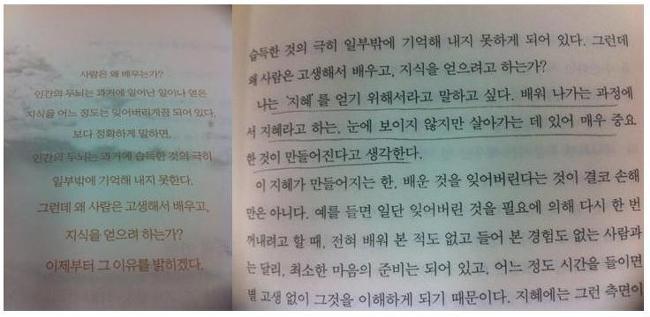 사람은 왜 배우는가?
인간의 두뇌는 과거에 일어난 일이나 얻은
지식을 어느 정도는 잊어버리게끔 되어 있다.
보다 정확하게 말하면,
인간의 두뇌는 과거에 습득한 것의 극히
일부밖에 기억해 내지 못한다.
그런데 왜 사람은 고생해서 배우고,
지식을 얻으려 하는가?
이제부터 그 이유를 밝히겠다.
습득한 것의 극히 일부밖에 기억해 내지 못하게 되어 있다. 그런데
왜 사람은 고생해서 배우고, 지식을 얻으려고 하는가?
나는 '지혜'를 얻기 위해서라고 말하고 싶다. 배워 나가는 과정에
서 지혜라고 하는, 눈에 보이지 않지만 살아가는 데 있어 매우 중요
한 것이 만들어진다고 생각한다.
이 지혜가 만들어지는 한, 배운 것을 잊어버린다는 것이 결코 손해
만은 아니다. 예를 들면 일단 잊어버린 것을 필요에 의해 다시 한 번
꺼내려고 할 때, 전혀 배워 본 적도 없고 들어 본 경험도 없는 사람과
는 달리, 최소한 마음의 준비는 되어 있고, 어느 정도 시간을 들이면
별 고생 없이 그것을 이해하게 되기 때문이다. 지혜에는 그런 측면이